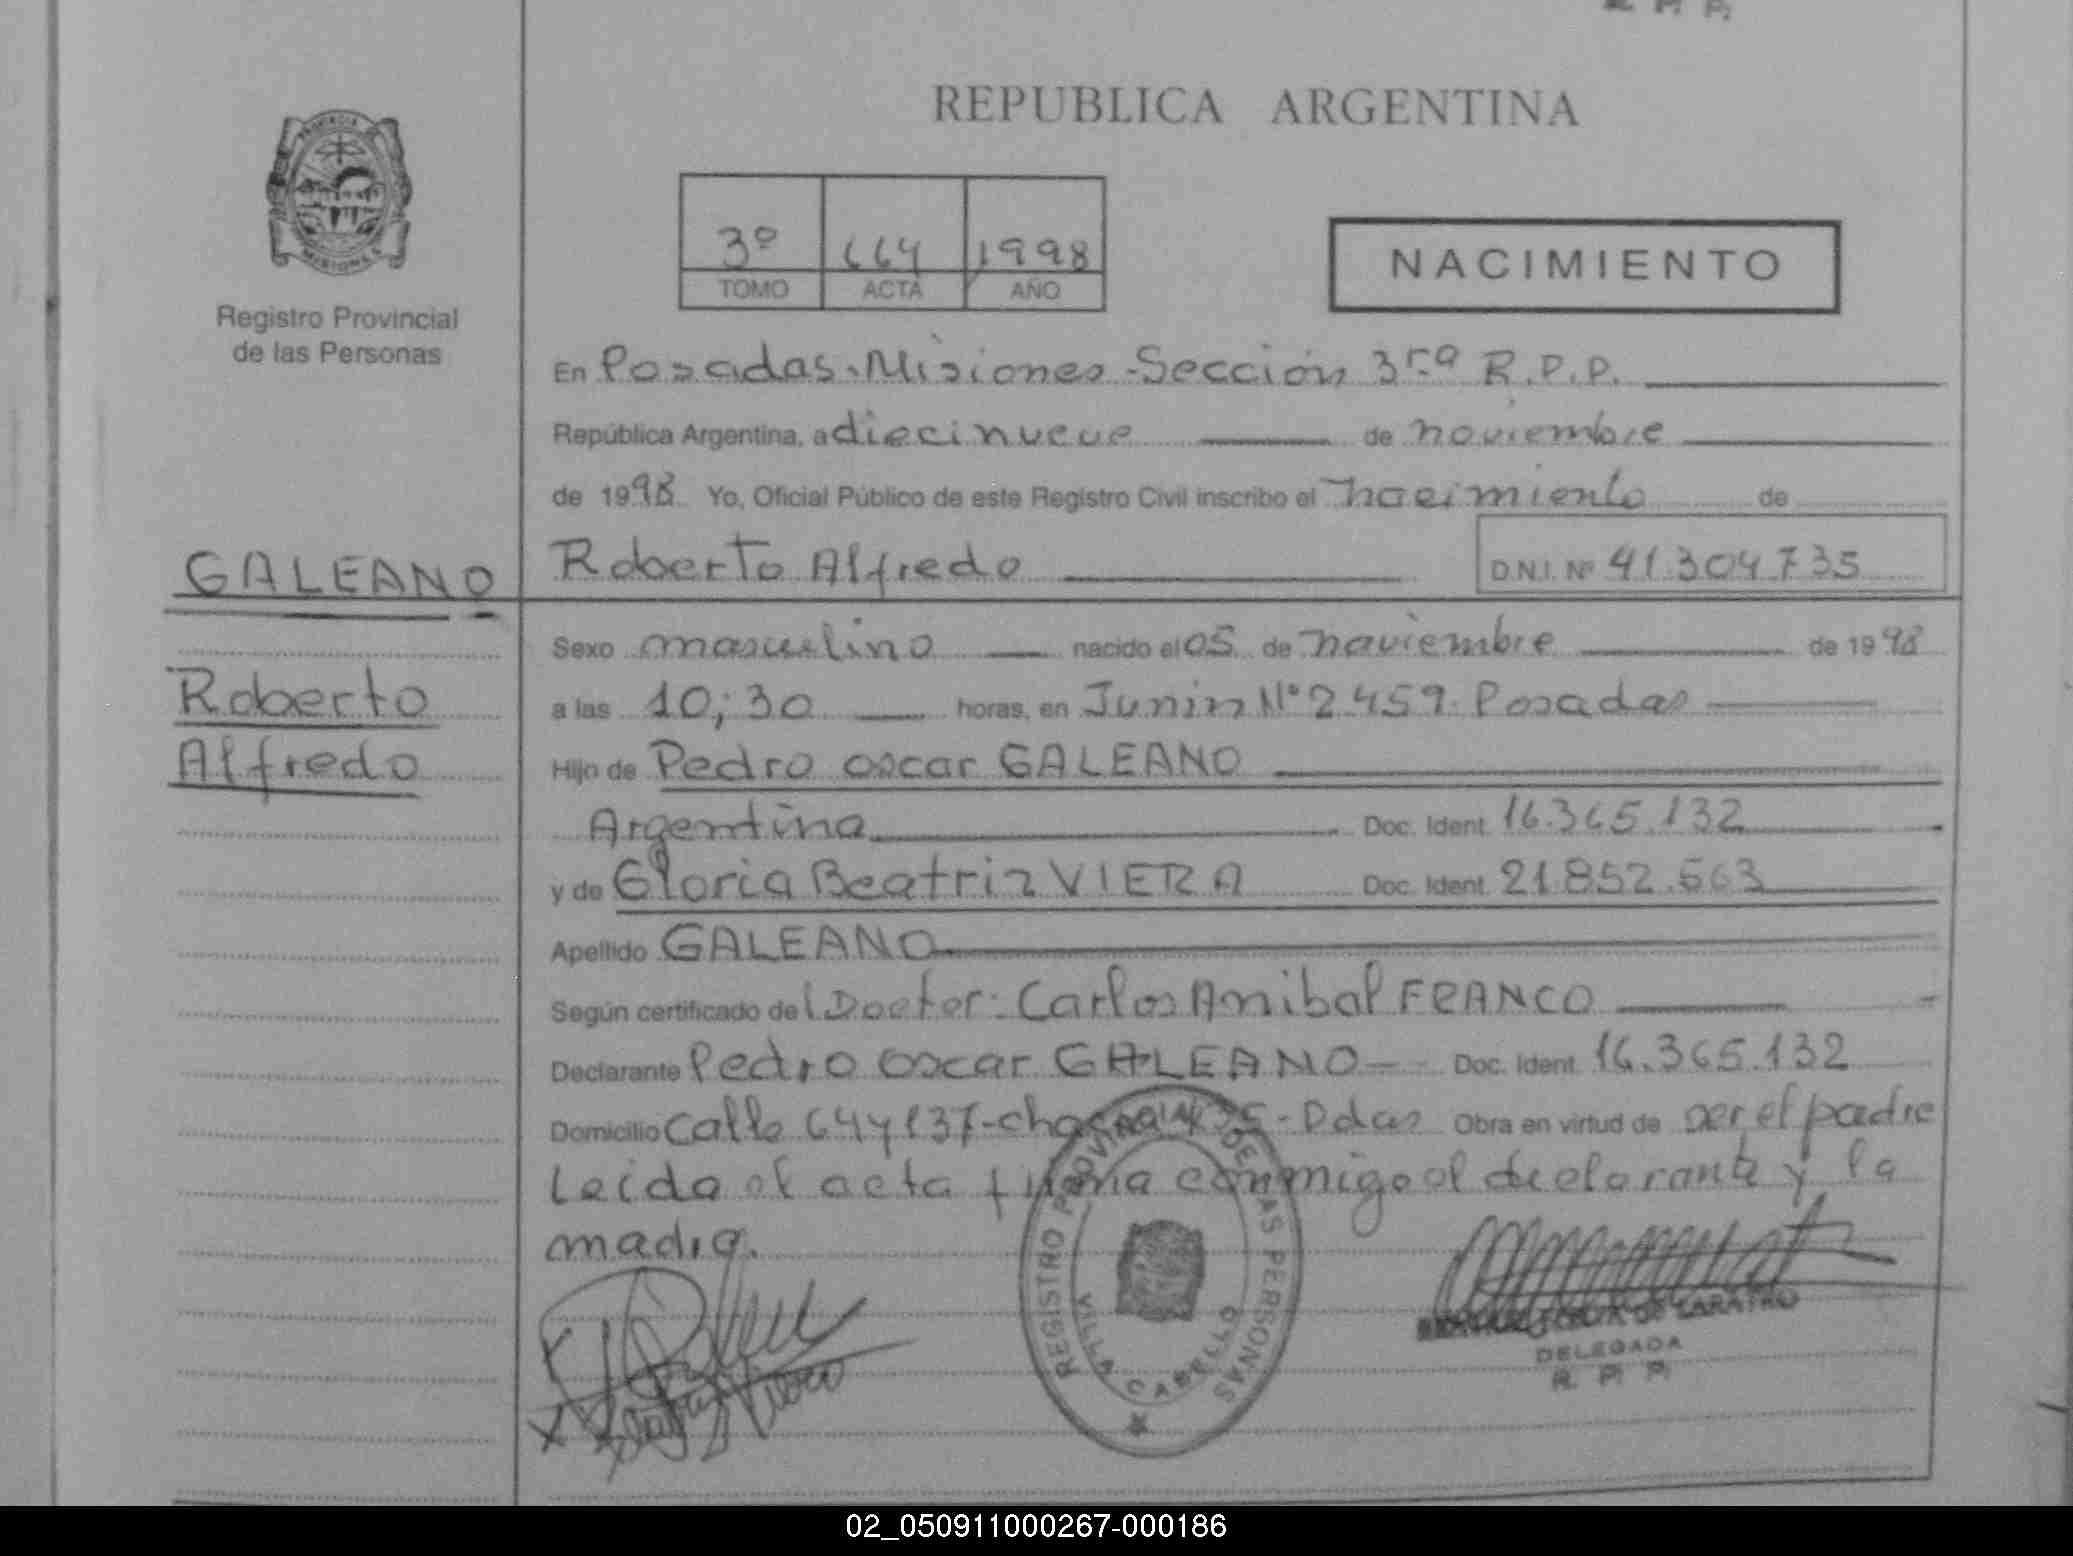 R. P. P.
REPUBLICA ARGENTINA
PROVINCIA
MISIONES
Registro Provincial
de las Personas
3º 664 1998
TOMO ACTA AÑO
NACIMIENTO
En Posadas-Misiones-Sección 3ra R.P.P.
República Argentina, a diecinueve de noviembre
de 1998 Yo, Oficial Público de este Registro Civil inscribo el nacimiento de
GALEANO
Roberto
Alfredo
Roberto Alfredo D.N.I. Nº 41.304.735
Sexo masculino nacido el 05 de noviembre de 1998
a las 10;30 horas, en Junin Nº 2.459. Posadas
Hijo de Pedro oscar GALEANO
Argentina Doc. Ident. 16.365.132
y de Gloria Beatriz VIERA Doc. Ident. 21.852.563
Apellido GALEANO
Según certificado del Doctor: Carlos Anibal FRANCO
Declarante Pedro oscar GALEANO Doc. Ident. 16.365.132
Domicilio calle 64 y 137-chacra - Pdas Obra en virtud de ser el padre
Leida el acta firma conmigo el declarante y la
madre.
REGISTRO PROVINCIAL DE LAS PERSONAS
VILLA CABELLO
DELEGADA
R. P. P.
02_050911000267-000186